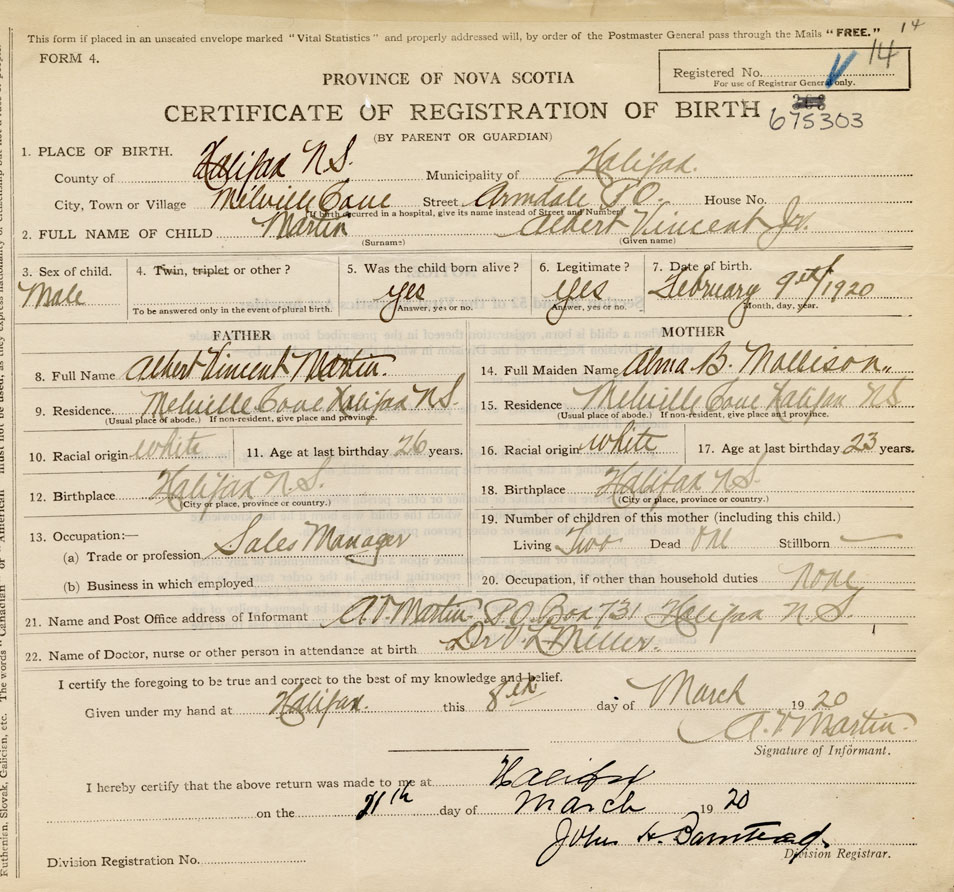 14
This form if placed in an unsealed envelope marked "Vital Statistics" and properly addressed will, by order of the Postmaster General pass through the Mails "FREE."
FORM 4.
Registered No. 14
For use of Registrar General only.
PROVINCE OF NOVA SCOTIA
CERTIFICATE OF REGISTRATION OF BIRTH
675303
(BY PARENT OR GUARDIAN)
1. PLACE OF BIRTH.
County of Halifax N.S. Municipality of Halifax.
City, Town or Village Melville Cove Street Armdale P.O. House No.
(If birth occurred in a hospital, give its name instead of Street and Number)
2. FULL NAME OF CHILD Martin Albert Vincent Jr.
(Surname) (Given name)
3. Sex of child. 4. Twin, triplet or other? 5. Was the child born alive? 6. Legitimate? 7. Date of birth.
Male yes yes February 9th/1920
To be answered only in the event of plural birth. Answer, yes or no. Answer, yes or no. Month, day, year.
FATHER MOTHER
8. Full Name Albert Vincent Martin. 14. Full Maiden Name Alma B. Mollison.
9. Residence. Melville Cove Halifax N.S. 15. Residence Melville Cove Halifax N.S
(Usual place of abode.) If non-resident, give place and province. (Usual place of abode.) If non-resident, give place and province.
10. Racial origin white 11. Age at last birthday 26 years. 16. Racial origin white 17. Age at last birthday 23 years.
12. Birthplace Halifax N.S. 18. Birthplace Halifax N.S
(City or place, province or country.) (City or place, province or country.)
13. Occupation:— 19. Number of children of this mother (including this child.)
(a) Trade or profession Sales Manager Living Two Dead One Stillborn —
(b) Business in which employed 20. Occupation, if other than household duties none
21. Name and Post Office address of Informant A.V. Martin P.O. Box 731 Halifax N.S.
22. Name of Doctor, nurse or other person in attendance at birth Dr V. L. Miller.
I certify the foregoing to be true and correct to the best of my knowledge and belief.
Given under my hand at Halifax. this 8th day of March 1920
A.V. Martin.
Signature of Informant.
I hereby certify that the above return was made to me at Halifax
on the 11th day of March 1920
John H. Barnstead.
Division Registrar.
Division Registration No.